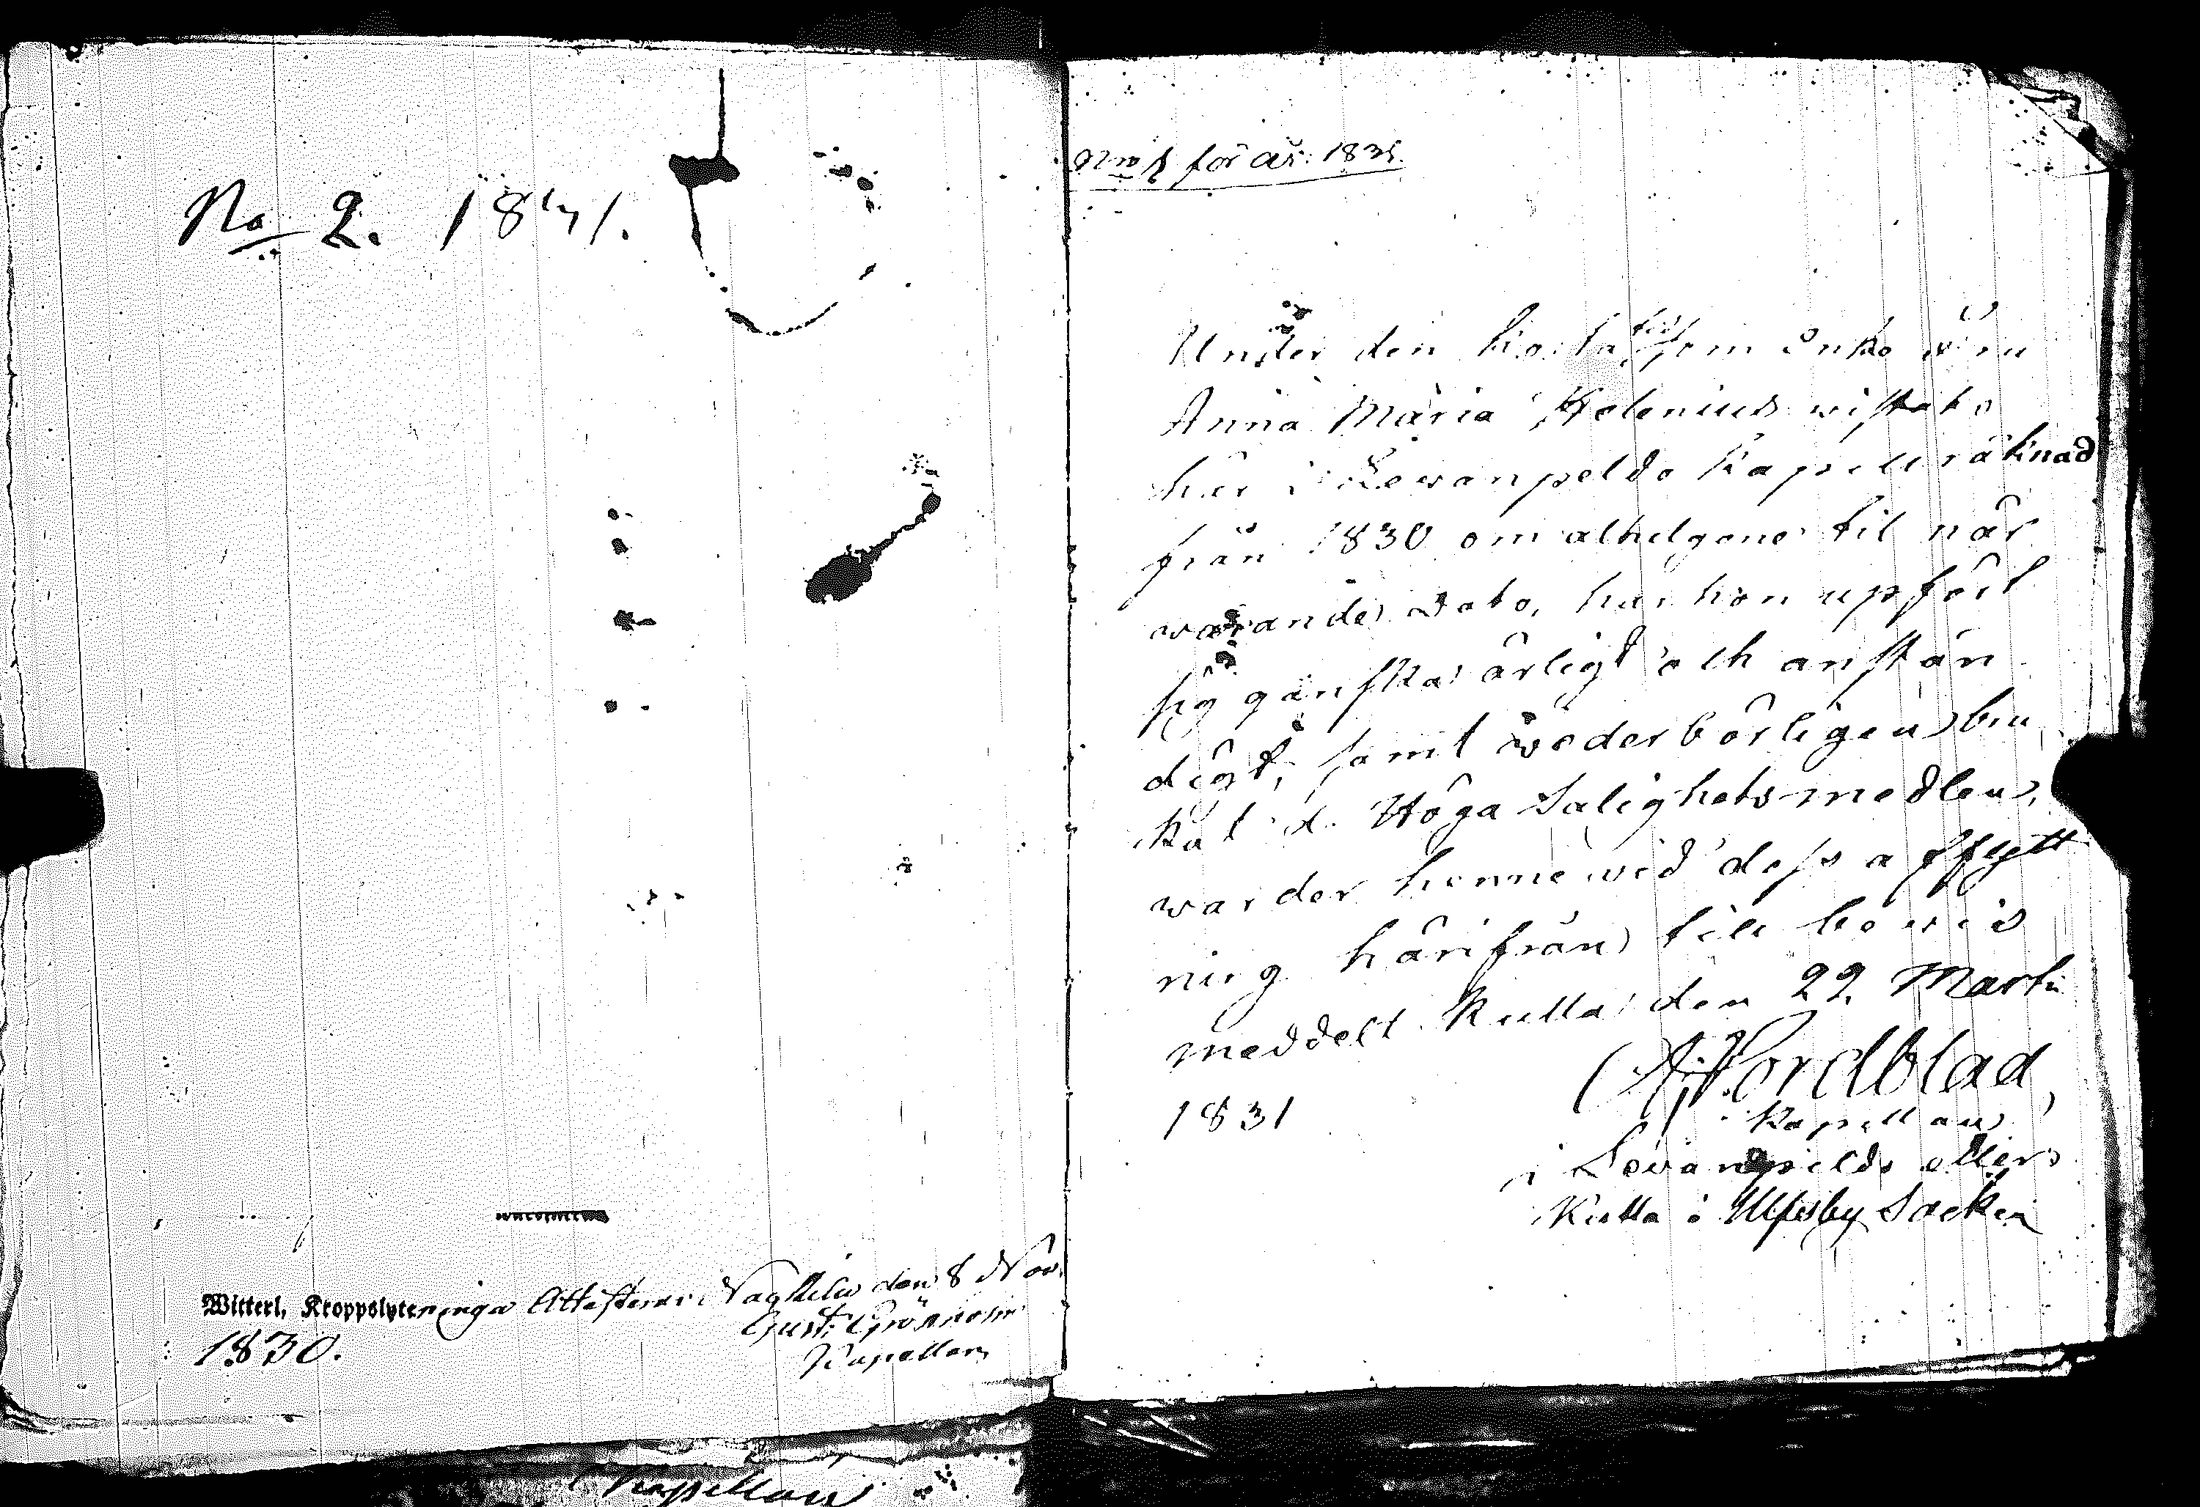 No 2. 1841.
Witterl, Kroppslyteninga Attesterar Nagu den 8 Nov.
1830.
Gust: Grönroos
Kapellan
för år: 1831.
Under den korta tid som Enko Fru
Anna Maria Helenius wistats
här i Lewanpeldo Kapell räknad
från 1830 om alhelgone til när
warande dato, har hon upfört
sig ganska ärligt och anstän
digt, samt wederbörligen bru
kat d. Höga Salighets medlen,
warder henne wid dess afflytt
ning härifrån till bewis
meddelt Kulla den 22 Martii
1831
A: Nordblad,
Kapellan
i Lewanpeldo eller
Kulla i Ulfsby Socken
Kapellan